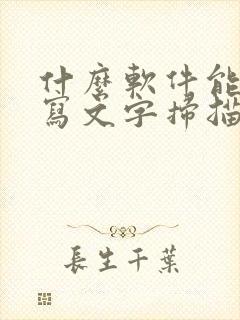 什麼軟件能
寫文字掃描
長生千葉